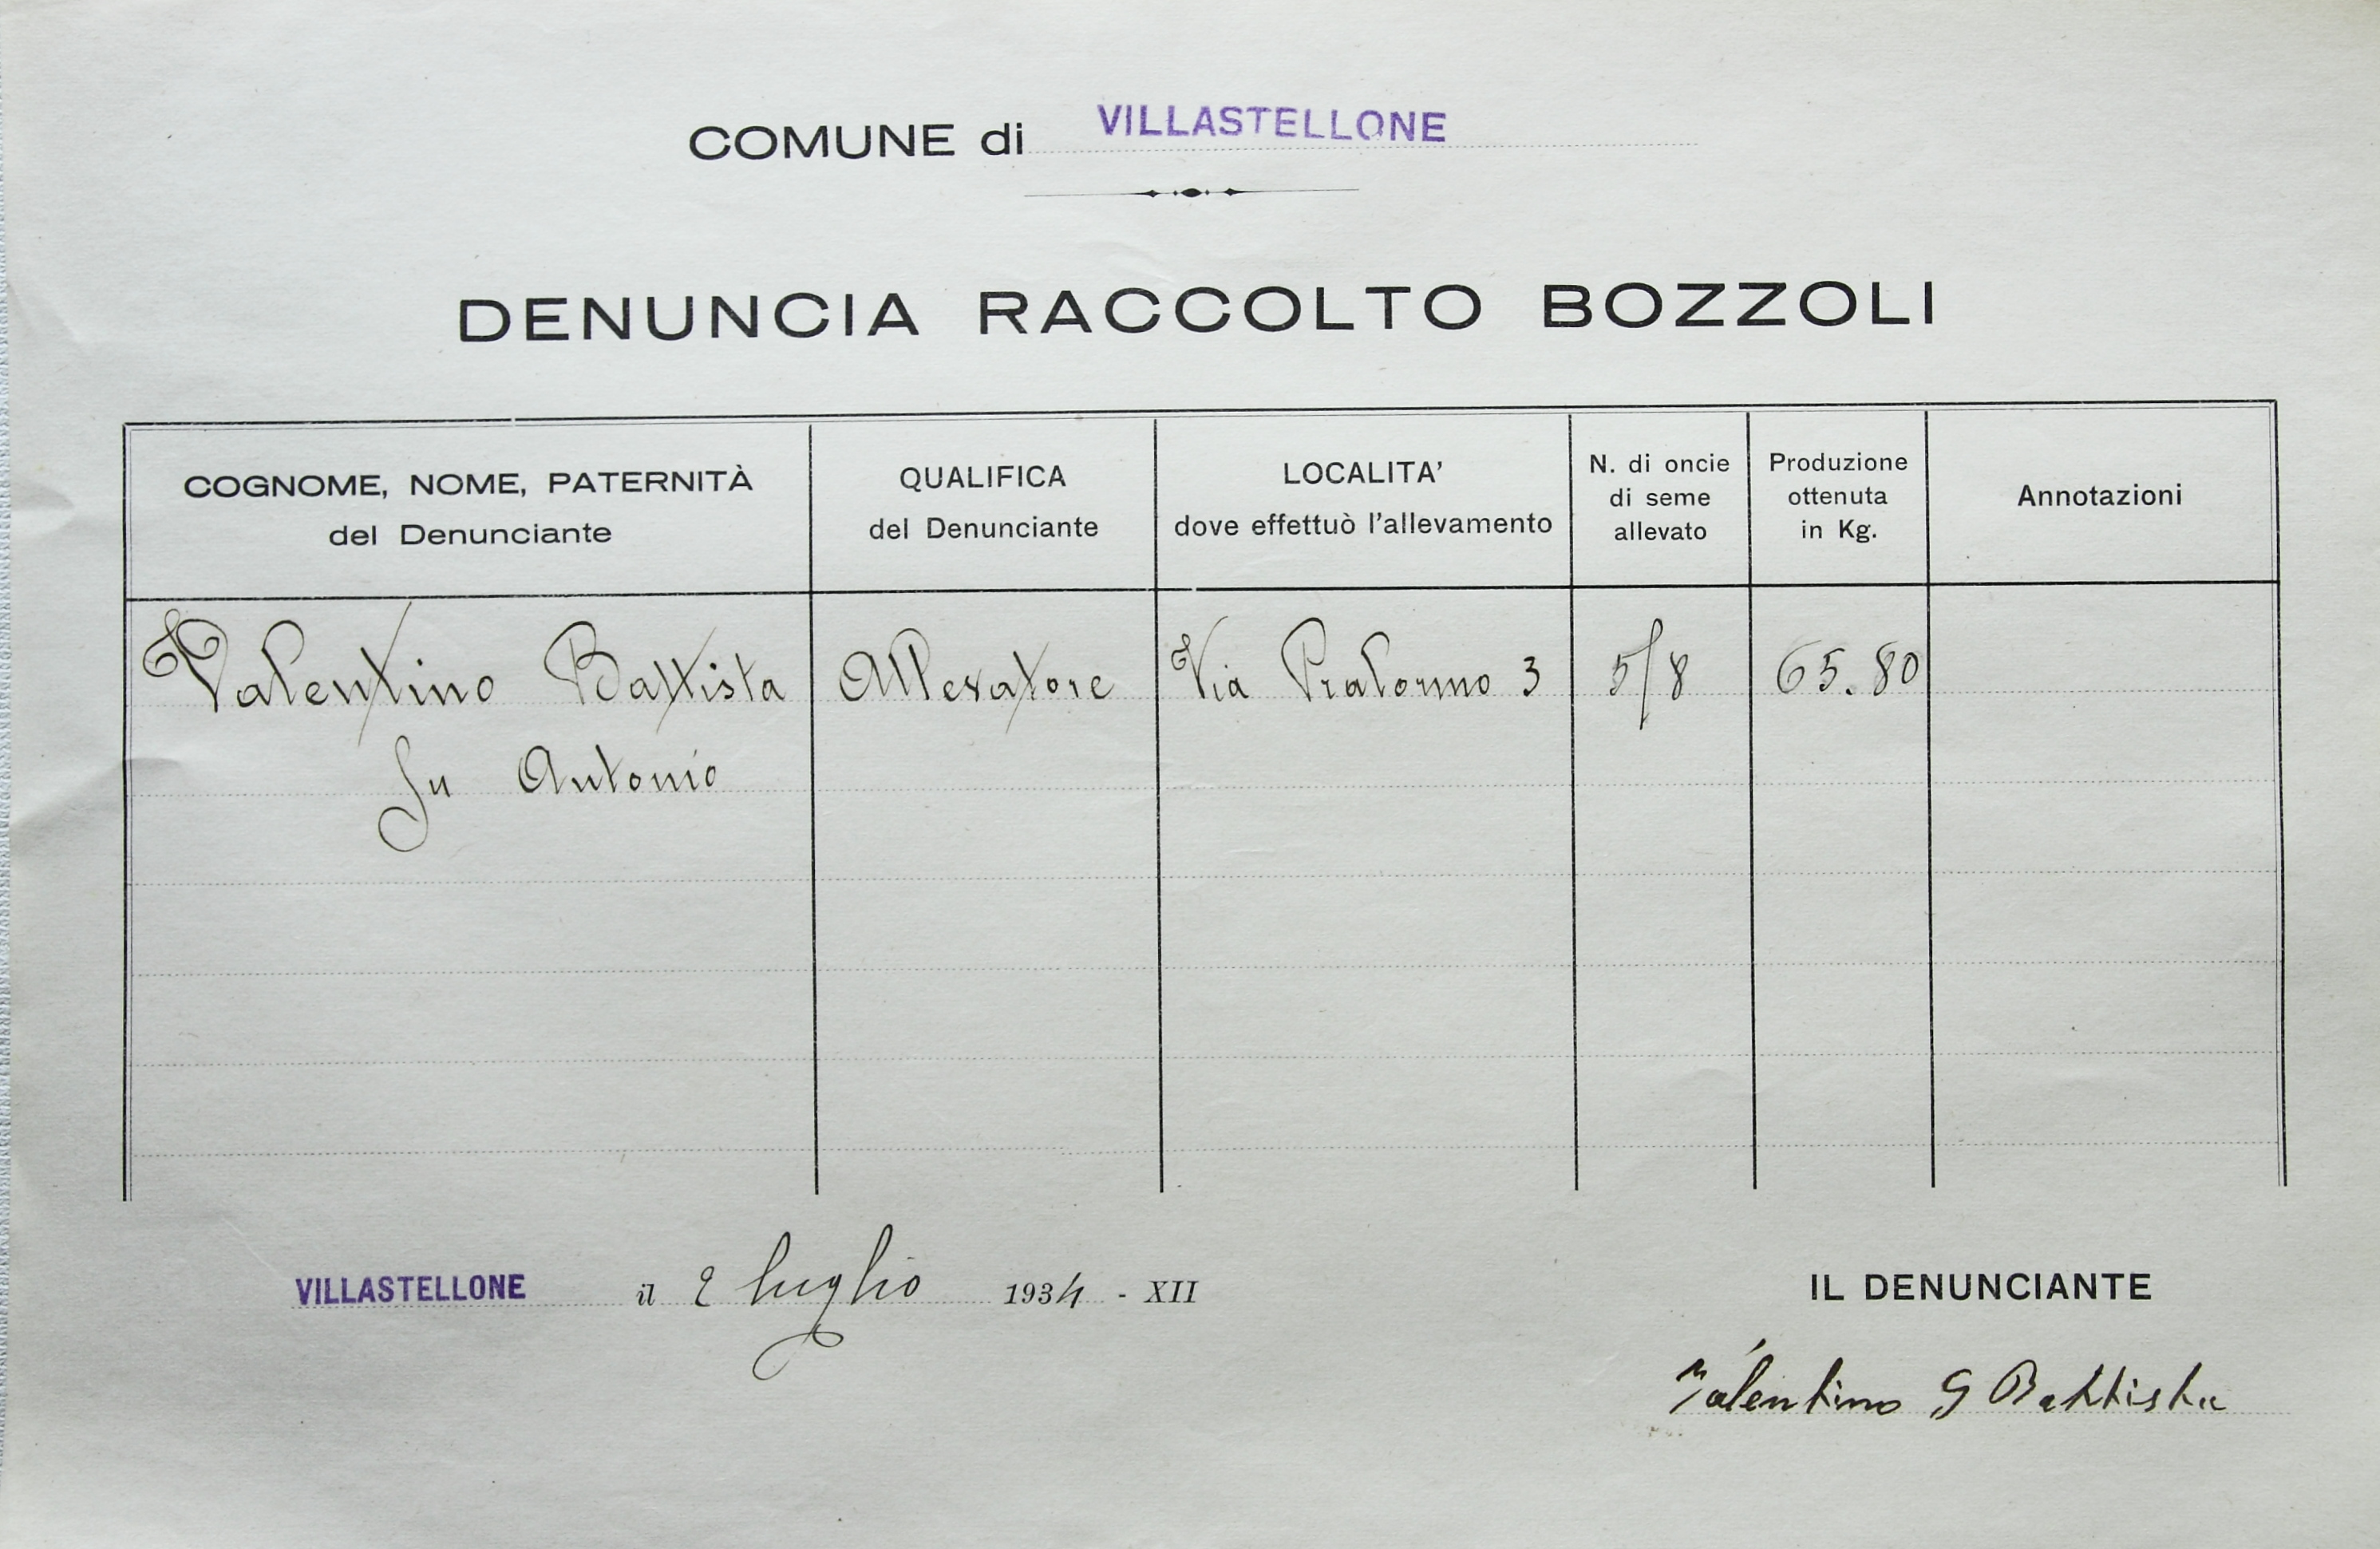 COMUNE di VILLASTELLONE
DENUNCIA RACCOLTO BOZZOLI
COGNOME, NOME, PATERNITÀ
del Denunciante
QUALIFICA
del Denunciante
LOCALITA'
dove effettuò l'allevamento
N. di oncie
di seme
allevato
Produzione
ottenuta
in Kg.
Annotazioni
Valentino Battista Allevatore Via Pralormo 3 5/8 65.80
fu Antonio
VILLASTELLONE il 2 luglio 1934 - XII
IL DENUNCIANTE
Valentino G Battista